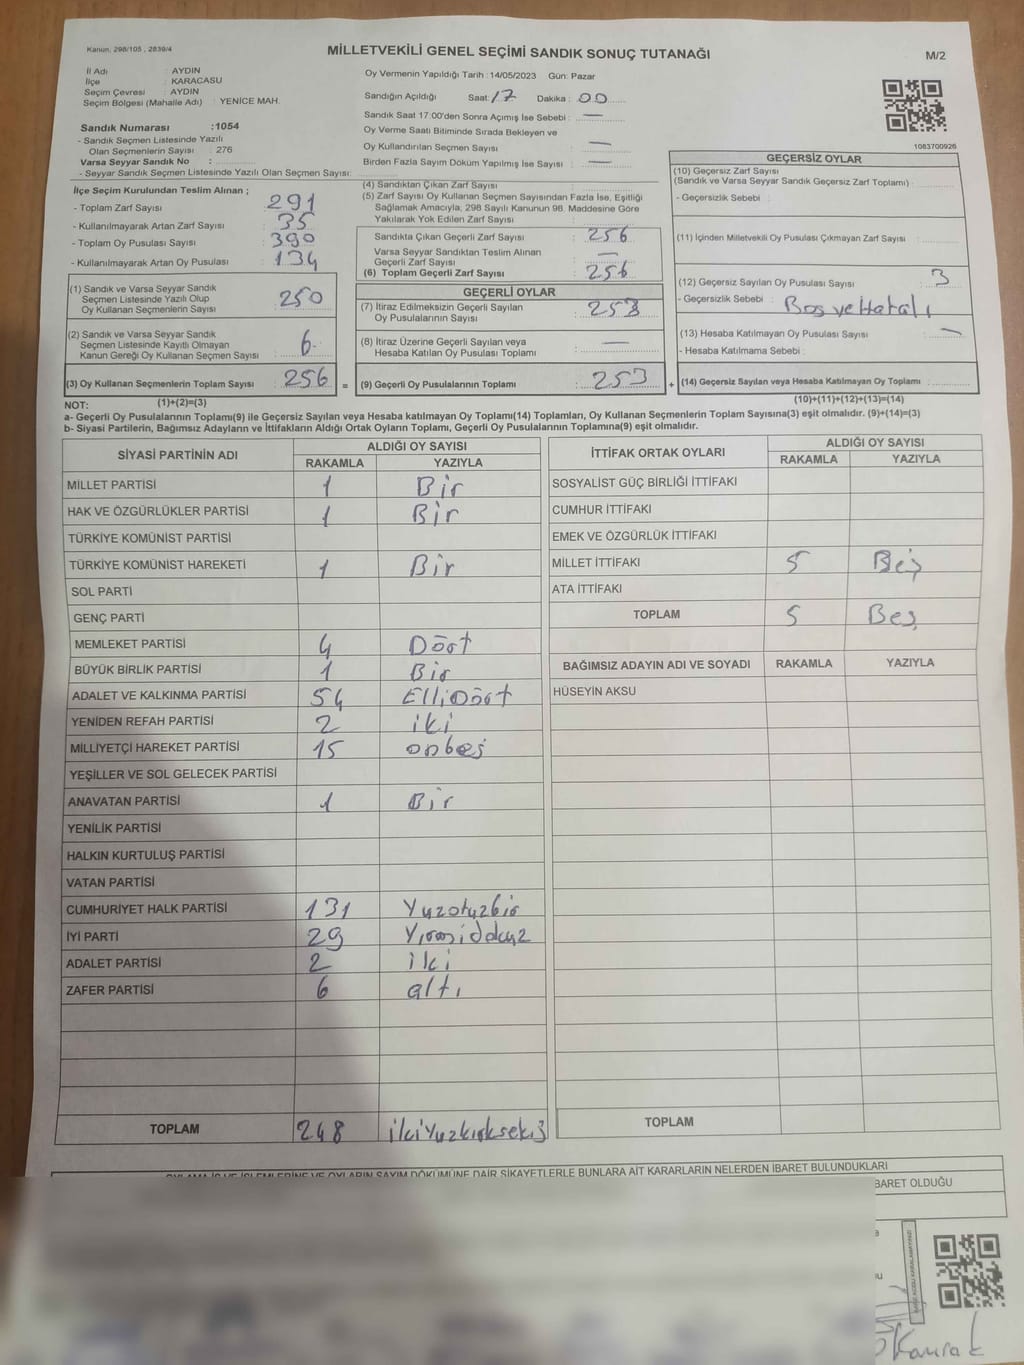 Kanun, 298/105 , 2839/4
MİLLETVEKİLİ GENEL SEÇİMİ SANDIK SONUÇ TUTANAĞI
M/2
İl Adı : AYDIN
İlçe : KARACASU
Seçim Çevresi : AYDIN
Seçim Bölgesi (Mahalle Adı) : YENİCE MAH.
Sandık Numarası :1054
- Sandık Seçmen Listesinde Yazılı
Olan Seçmenlerin Sayısı : 276
Varsa Seyyar Sandık No :
- Seyyar Sandık Seçmen Listesinde Yazılı Olan Seçmen Sayısı:
Oy Vermenin Yapıldığı Tarih :14/05/2023 Gün: Pazar
Sandığın Açıldığı Saat: 17 Dakika : 00
Sandık Saat 17:00'den Sonra Açımış İse Sebebi : —
Oy Verme Saati Bitiminde Sırada Bekleyen ve
Oy Kullandırılan Seçmen Sayısı : —
Birden Fazla Sayım Döküm Yapılmış İse Sayısı : —
1083700926
İlçe Seçim Kurulundan Teslim Alınan ;
- Toplam Zarf Sayısı : 291
- Kullanılmayarak Artan Zarf Sayısı : 35
- Toplam Oy Pusulası Sayısı : 390
- Kullanılmayarak Artan Oy Pusulası : 134
(1) Sandık ve Varsa Seyyar Sandık
Seçmen Listesinde Yazılı Olup
Oy Kullanan Seçmenlerin Sayısı : 250
(2) Sandık ve Varsa Seyyar Sandık
Seçmen Listesinde Kayıtlı Olmayan
Kanun Gereği Oy Kullanan Seçmen Sayısı : 6
(3) Oy Kullanan Seçmenlerin Toplam Sayısı : 256 =
(1)+(2)=(3)
(4) Sandıktan Çıkan Zarf Sayısı :
(5) Zarf Sayısı Oy Kullanan Seçmen Sayısından Fazla İse, Eşitliği
Sağlamak Amacıyla, 298 Sayılı Kanunun 98. Maddesine Göre
Yakılarak Yok Edilen Zarf Sayısı :
Sandıkta Çıkan Geçerli Zarf Sayısı : 256
Varsa Seyyar Sandıktan Teslim Alınan
Geçerli Zarf Sayısı : —
(6) Toplam Geçerli Zarf Sayısı : 256
GEÇERLİ OYLAR
(7) İtiraz Edilmeksizin Geçerli Sayılan
Oy Pusulalarının Sayısı : 253
(8) İtiraz Üzerine Geçerli Sayılan veya
Hesaba Katılan Oy Pusulası Toplamı : —
(9) Geçerli Oy Pusulalarının Toplamı : 253 +
GEÇERSİZ OYLAR
(10) Geçersiz Zarf Sayısı
(Sandık ve Varsa Seyyar Sandık Geçersiz Zarf Toplamı) :
- Geçersizlik Sebebi :
(11) İçinden Milletvekili Oy Pusulası Çıkmayan Zarf Sayısı :
(12) Geçersiz Sayılan Oy Pusulası Sayısı : 3
- Geçersizlik Sebebi : Boş ve Hatalı
(13) Hesaba Katılmayan Oy Pusulası Sayısı : —
- Hesaba Katılmama Sebebi :
(14) Geçersiz Sayılan veya Hesaba Katılmayan Oy Toplamı :
(10)+(11)+(12)+(13)=(14)
NOT:
a- Geçerli Oy Pusulalarının Toplamı(9) ile Geçersiz Sayılan veya Hesaba katılmayan Oy Toplamı(14) Toplamları, Oy Kullanan Seçmenlerin Toplam Sayısına(3) eşit olmalıdır. (9)+(14)=(3)
b- Siyasi Partilerin, Bağımsız Adayların ve İttifakların Aldığı Ortak Oyların Toplamı, Geçerli Oy Pusulalarının Toplamına(9) eşit olmalıdır.
SİYASİ PARTİNİN ADI ALDIĞI OY SAYISI
RAKAMLA YAZIYLA
MİLLET PARTİSİ 1 Bir
HAK VE ÖZGÜRLÜKLER PARTİSİ 1 Bir
TÜRKİYE KOMÜNİST PARTİSİ
TÜRKİYE KOMÜNİST HAREKETİ 1 Bir
SOL PARTİ
GENÇ PARTİ
MEMLEKET PARTİSİ 4 Dört
BÜYÜK BİRLİK PARTİSİ 1 Bir
ADALET VE KALKINMA PARTİSİ 54 ElliDört
YENİDEN REFAH PARTİSİ 2 iki
MİLLİYETÇİ HAREKET PARTİSİ 15 onbeş
YEŞİLLER VE SOL GELECEK PARTİSİ
ANAVATAN PARTİSİ 1 Bir
YENİLİK PARTİSİ
HALKIN KURTULUŞ PARTİSİ
VATAN PARTİSİ
CUMHURİYET HALK PARTİSİ 131 Yuzotuzbir
İYİ PARTİ 29 Yirmidokuz
ADALET PARTİSİ 2 iki
ZAFER PARTİSİ 6 altı
TOPLAM 248 ikiYuzkırksekiz
İTTİFAK ORTAK OYLARI ALDIĞI OY SAYISI
RAKAMLA YAZIYLA
SOSYALİST GÜÇ BİRLİĞİ İTTİFAKI
CUMHUR İTTİFAKI
EMEK VE ÖZGÜRLÜK İTTİFAKI
MİLLET İTTİFAKI 5 Beş
ATA İTTİFAKI
TOPLAM 5 Beş
BAĞIMSIZ ADAYIN ADI VE SOYADI RAKAMLA YAZIYLA
HÜSEYİN AKSU
TOPLAM
OYLAMA İŞ VE İŞLEMLERİNE VE OYLARIN SAYIM DÖKÜMÜNE DAİR ŞİKAYETLERLE BUNLARA AİT KARARLARIN NELERDEN İBARET BULUNDUKLARI
BARET OLDUĞU